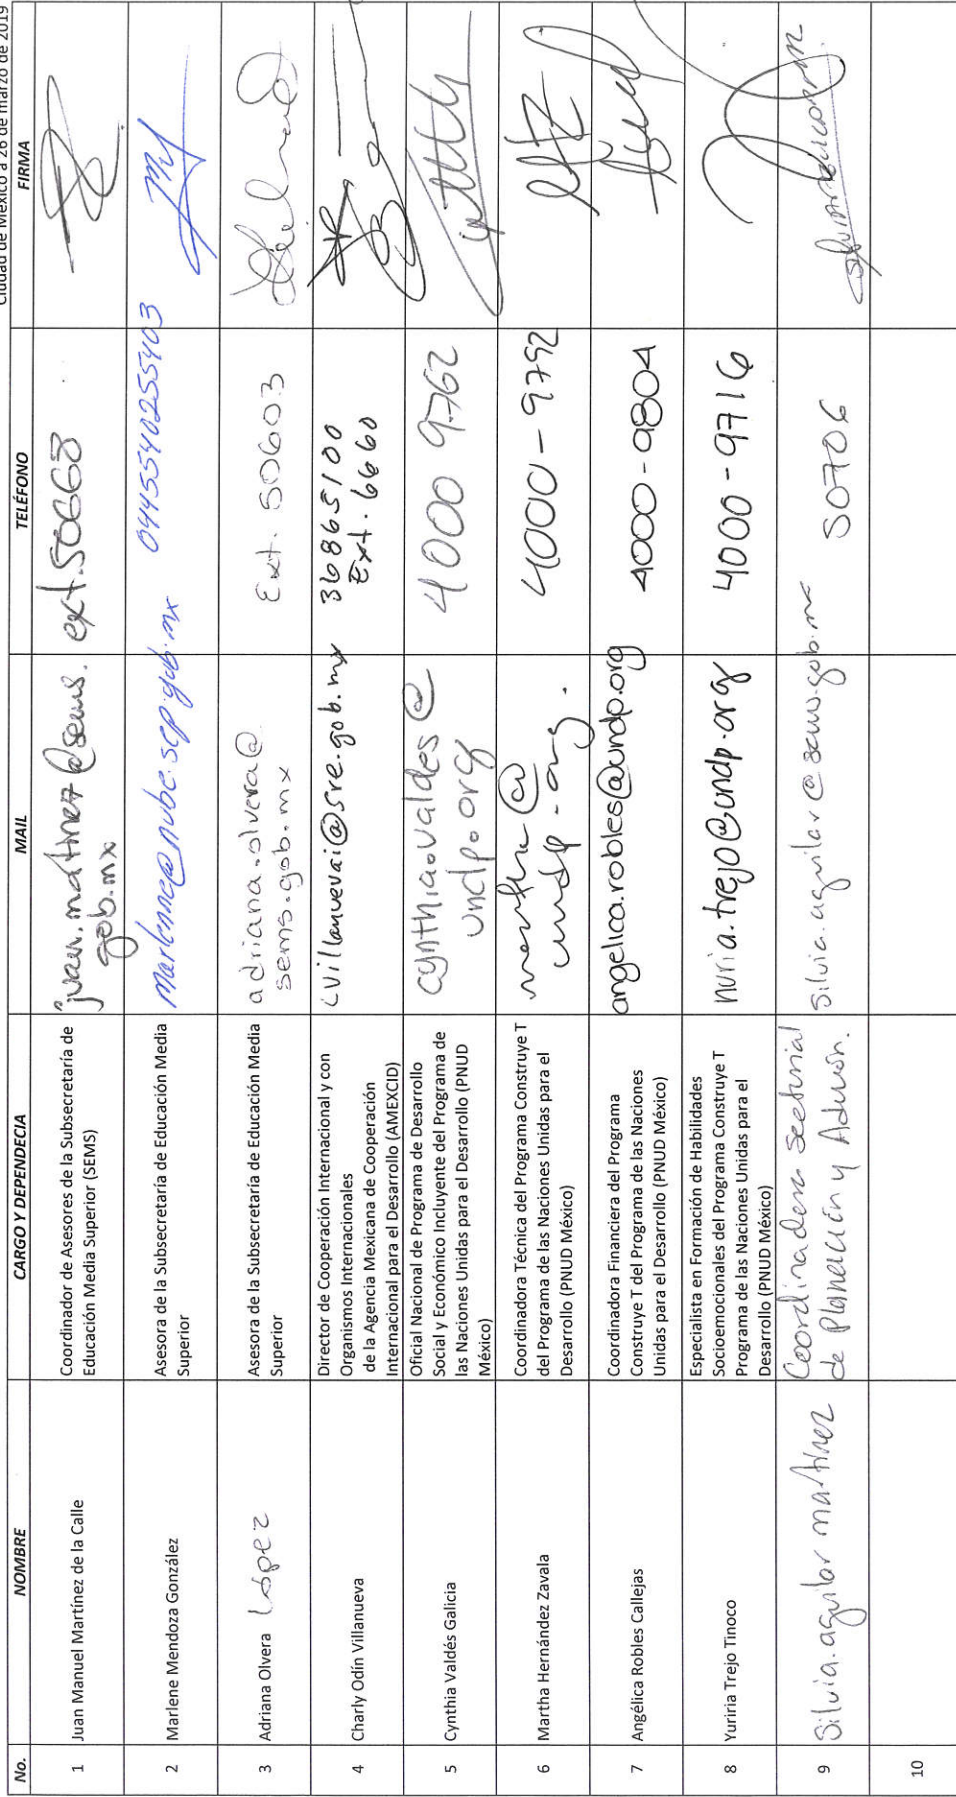 Ciudad de México a 26 de marzo de 2019
No. NOMBRE CARGO Y DEPENDECIA MAIL TELÉFONO FIRMA
1 Juan Manuel Martínez de la Calle
Coordinador de Asesores de la Subsecretaría de
Educación Media Superior (SEMS)
juan.martinez@sems.
gob.mx
ext.50668
2 Marlene Mendoza González
Asesora de la Subsecretaría de Educación Media
Superior
marlenne@nube.sep.gob.mx
0445540255403
3 Adriana Olvera López
Asesora de la Subsecretaría de Educación Media
Superior
adriana.olvera@
sems.gob.mx
Ext. 50603
4 Charly Odín Villanueva
Director de Cooperación Internacional y con
Organismos Internacionales
de la Agencia Mexicana de Cooperación
Internacional para el Desarrollo (AMEXCID)
cvillanuevai@sre.gob.mx
36865100
Ext. 6660
5 Cynthia Valdés Galicia
Oficial Nacional de Programa de Desarrollo
Social y Económico Incluyente del Programa de
las Naciones Unidas para el Desarrollo (PNUD
México)
cynthia.valdes@
undp.org
4000 9762
6 Martha Hernández Zavala
Coordinadora Técnica del Programa Construye T
del Programa de las Naciones Unidas para el
Desarrollo (PNUD México)
martha@
undp.org.
4000-9792
7 Angélica Robles Callejas
Coordinadora Financiera del Programa
Construye T del Programa de las Naciones
Unidas para el Desarrollo (PNUD México)
angelica.robles@undp.org
4000-9804
8 Yuriria Trejo Tinoco
Especialista en Formación de Habilidades
Socioemocionales del Programa Construye T
Programa de las Naciones Unidas para el
Desarrollo (PNUD México)
nuria.trejo@undp.org
4000-9716
9 Silvia.aguilar martínez
Coordinadora Sectorial
de Planeación y Admón.
silvia.aguilar@sems.gob.mx
50706
10